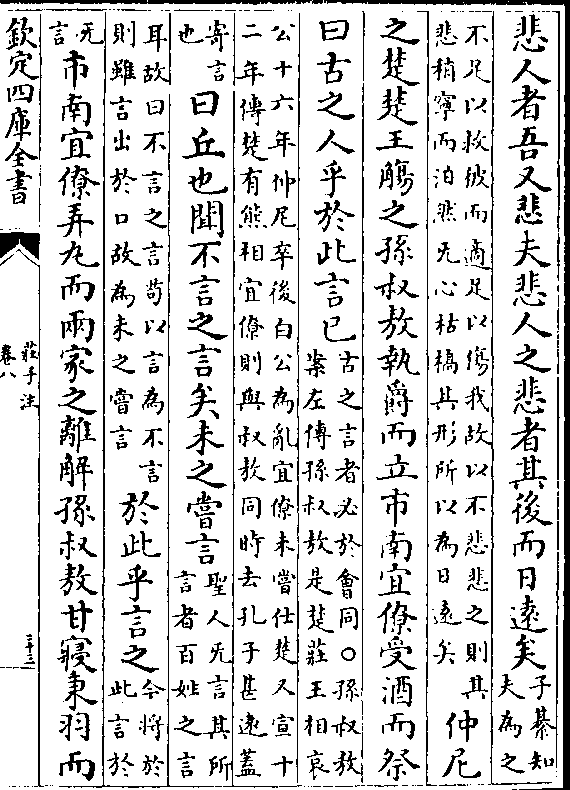 悲人者吾又悲夫悲人之悲者其後而日逺矣子綦知夫為之
不足以救彼而適足以傷我故以不悲悲之則其悲稍寧而泊然无心枯槁其形所以為日逺矣仲尼
之楚楚王觴之孫叔敖執爵而立市南宜僚受酒而祭
曰古之人乎於此言已古之言者必於會同○孫叔敖案左傳孫叔敖是楚莊王相哀
公十六年仲尼卒後白公為亂宜僚未嘗仕楚又宣十二年傳楚有熊相宜僚則與叔敖同時去孔子甚逺蓋
寄言也曰丘也聞不言之言矣未之嘗言聖人无言其所言者百姓之言
耳故曰不言之言茍以言為不言則雖言出於口故為未之嘗言於此乎言之今將於此言於
无言市南宜僚弄丸而兩家之難解孫叔敖甘寢秉羽而
欽定四庫全書
莊子注
卷八
三十三